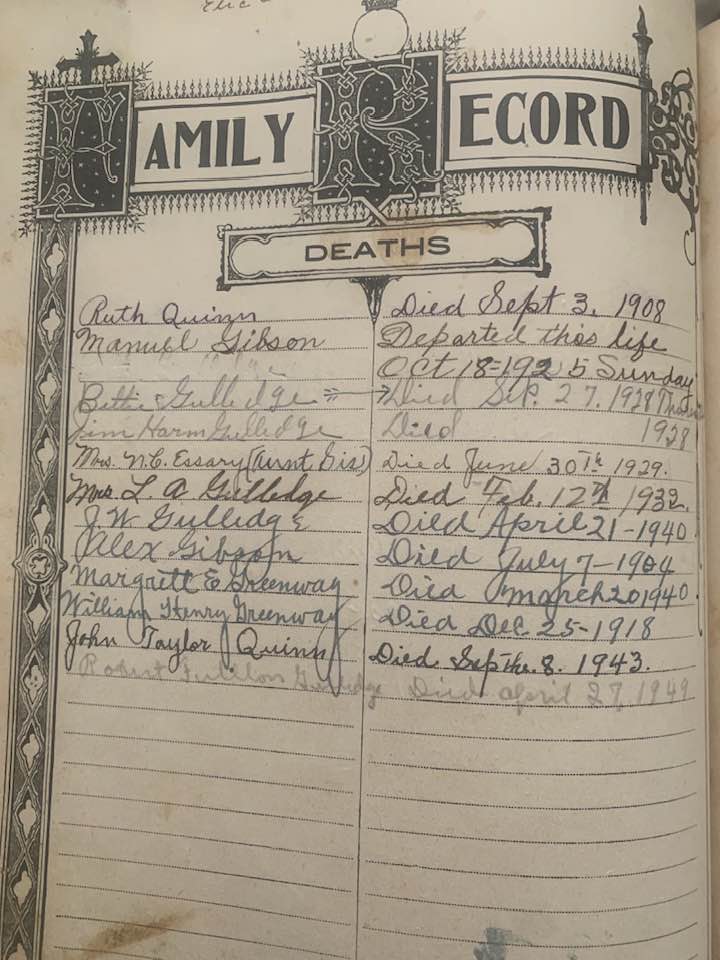 Eric
FAMILY RECORD
DEATHS
Ruth Quinn Died Sept 3, 1908
Manuel Gibson Departed this life
" " " " Oct 18=1925 Sunday
Bettie Gulledge Died Sep. 27. 1928
Jim Harm Gulledge Died 1928
Mrs. N.C. Essary (Aunt Sis) Died June 30th 1929.
Mrs. L. A Gulledge Died Feb. 12th 1932
J. W Gulledge Died April 21-1940
Alex Gibson Died July 7-1904
Margrett E Greenway Died March 20 1940
William Henry Greenway Died Dec. 25-1918
John Taylor Quinn Died Septhe. 8. 1943.
Robert Gulledge Died April 27, 1949